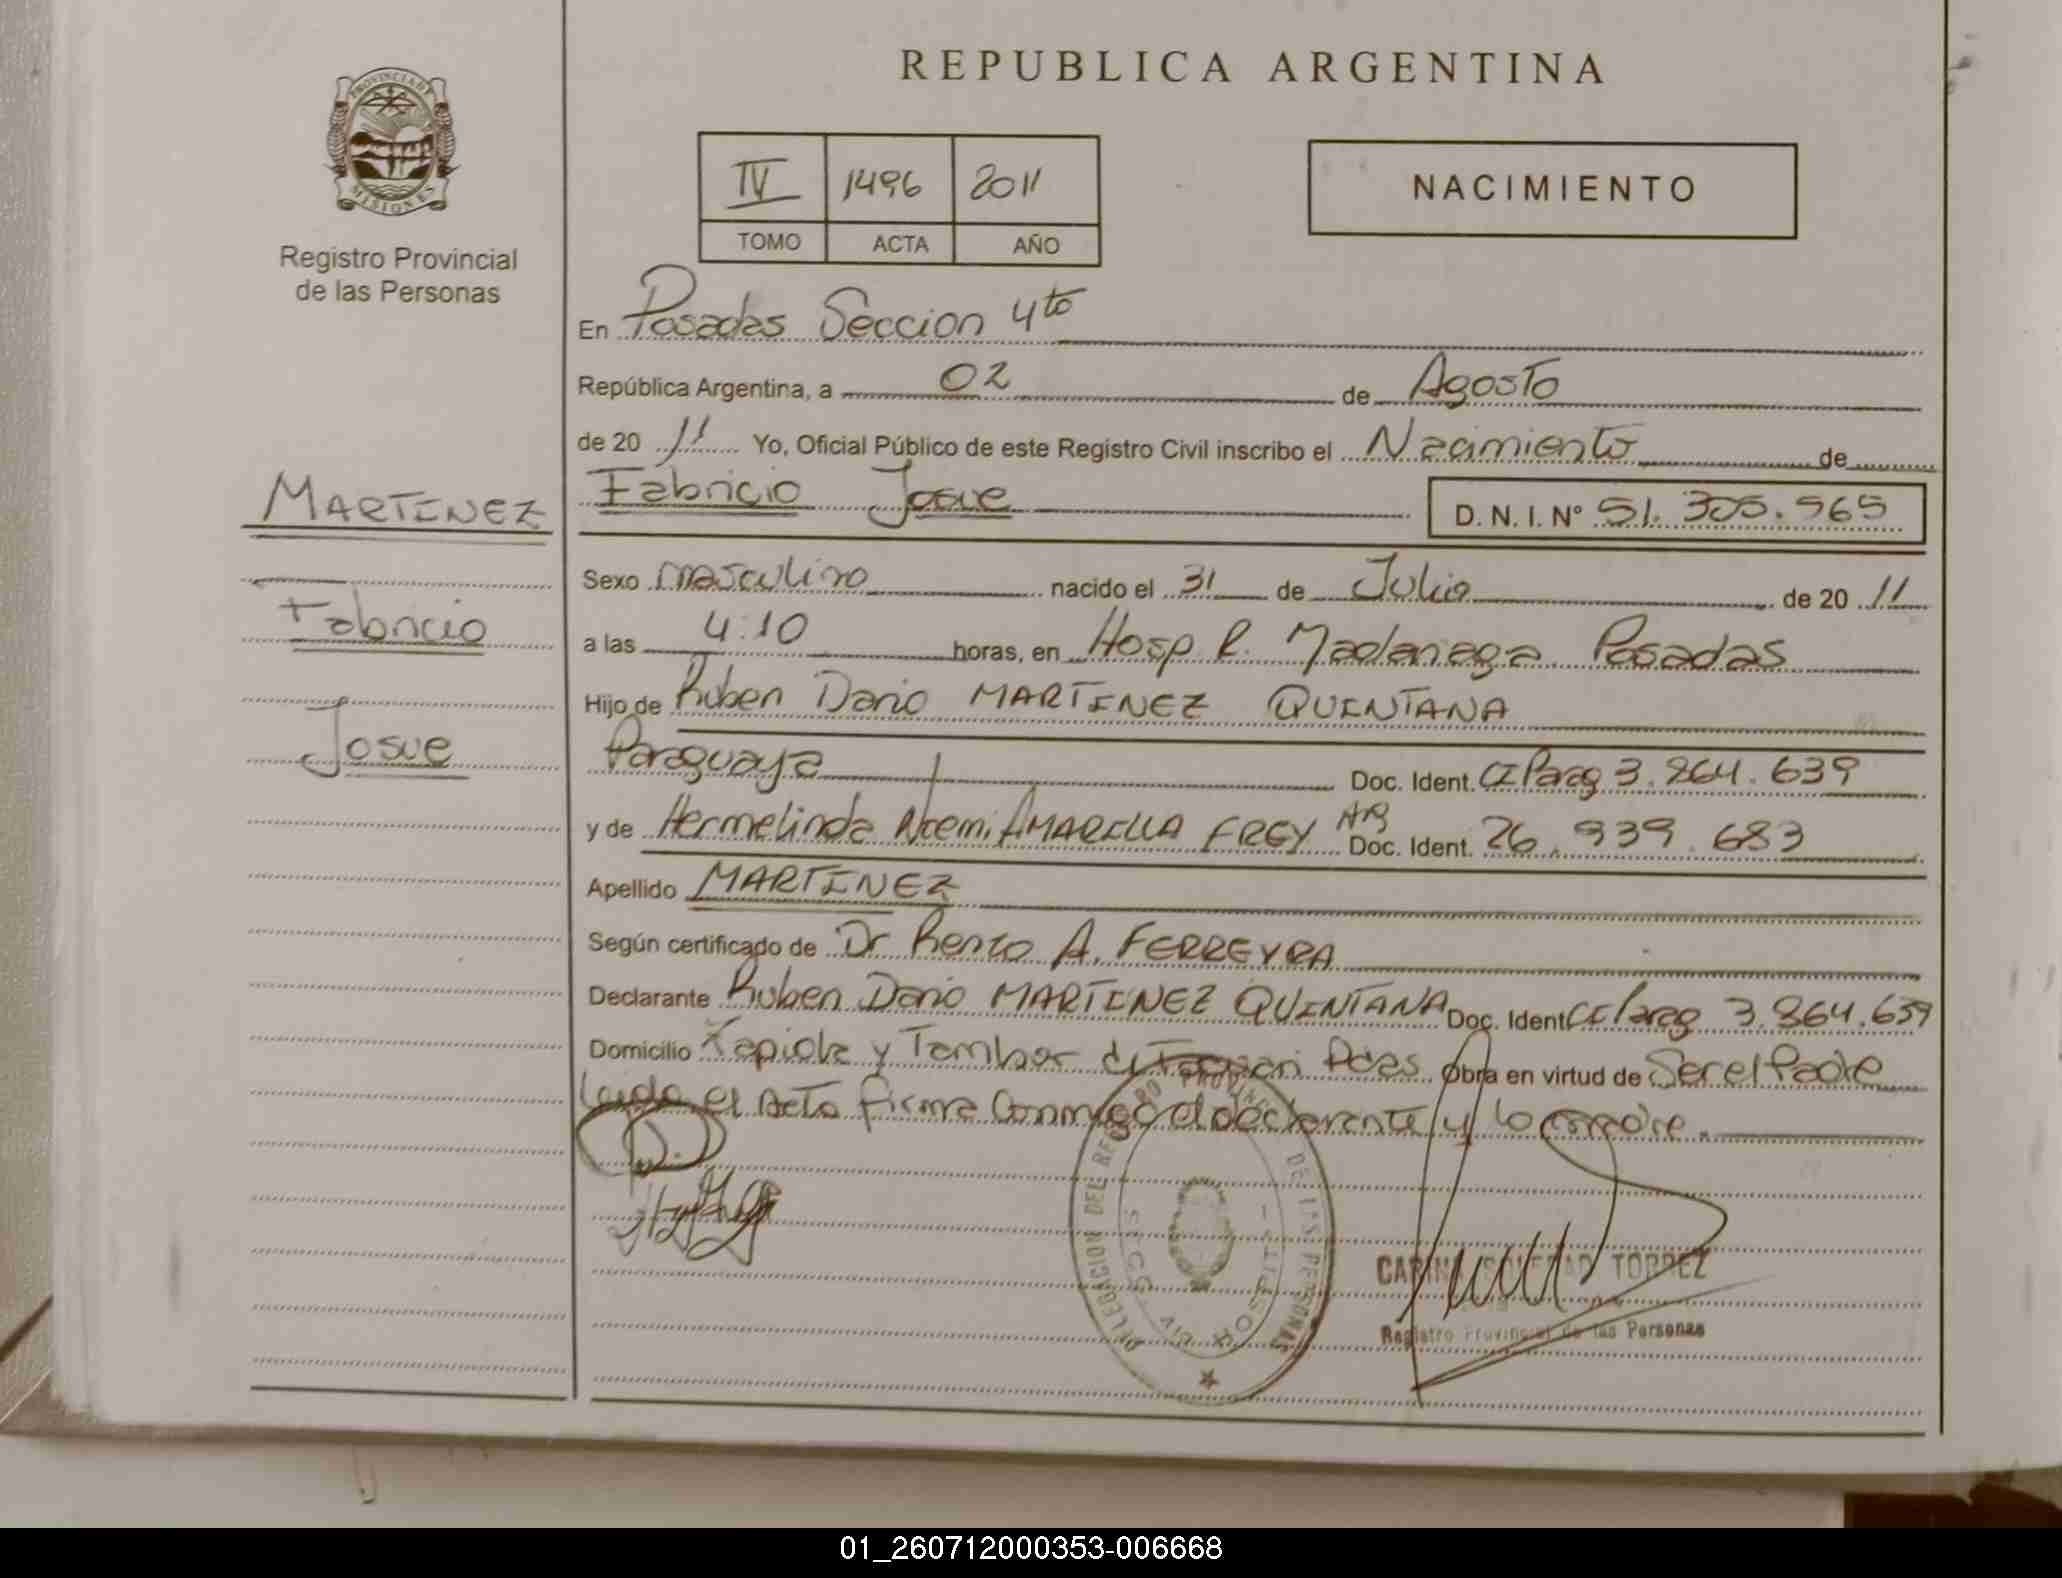 REPUBLICA ARGENTINA
PROVINCIA DE MISIONES
Registro Provincial
de las Personas
IV 1496 2011
TOMO ACTA AÑO
NACIMIENTO
En Posadas Seccion 4to
República Argentina, a 02 de Agosto
de 2011 Yo, Oficial Público de este Registro Civil inscribo el Nacimiento de
MARTINEZ
Fabricio Josue D. N. I. N° 51.305.965
Sexo masculino nacido el 31 de Julio de 2011
Fabricio
a las 4:10 horas, en Hosp R. Madariaga Posadas
Hijo de Ruben Dario MARTINEZ QUINTANA
Josue
Paraguaya Doc. Ident. CI Parag 3.864.639
y de Hermelinda Noemi AMARILLA FREY AR Doc. Ident. 26.939.683
Apellido MARTINEZ
Según certificado de Dr Renzo A. FERREYRA
Declarante Ruben Dario MARTINEZ QUINTANA Doc. Ident CI Parag 3.864.639
Domicilio Zapiola y Tambor de Tacuari Pdas Obra en virtud de Ser el Padre
Leida el acta firma conmigo el declarante y la madre.
DELEGACION DEL REGISTRO PROVINCIAL DE LAS PERSONAS
CARINA SOLEDAD TORREZ
Registro Provincial de las Personas
01_260712000353-006668